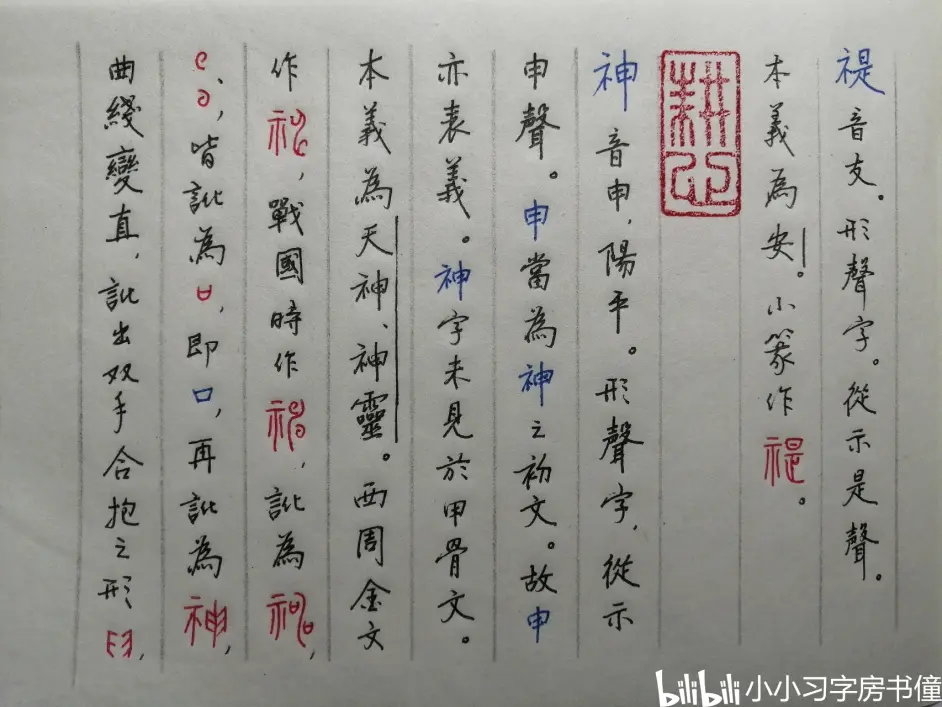 禔音支。形聲字。從示是聲。
本義為安。小篆作禔。
耕心
神音申，陽平。形聲字，從示
申聲。申當為神之初文。故申
亦表義。神字未見於甲骨文。
本義為天神、神靈。西周金文
作，戰國時作，訛為，
、，皆訛為，即口，再訛為神，
曲綫變直，訛出双手合抱之形，
bilibili 小小习字房书僮